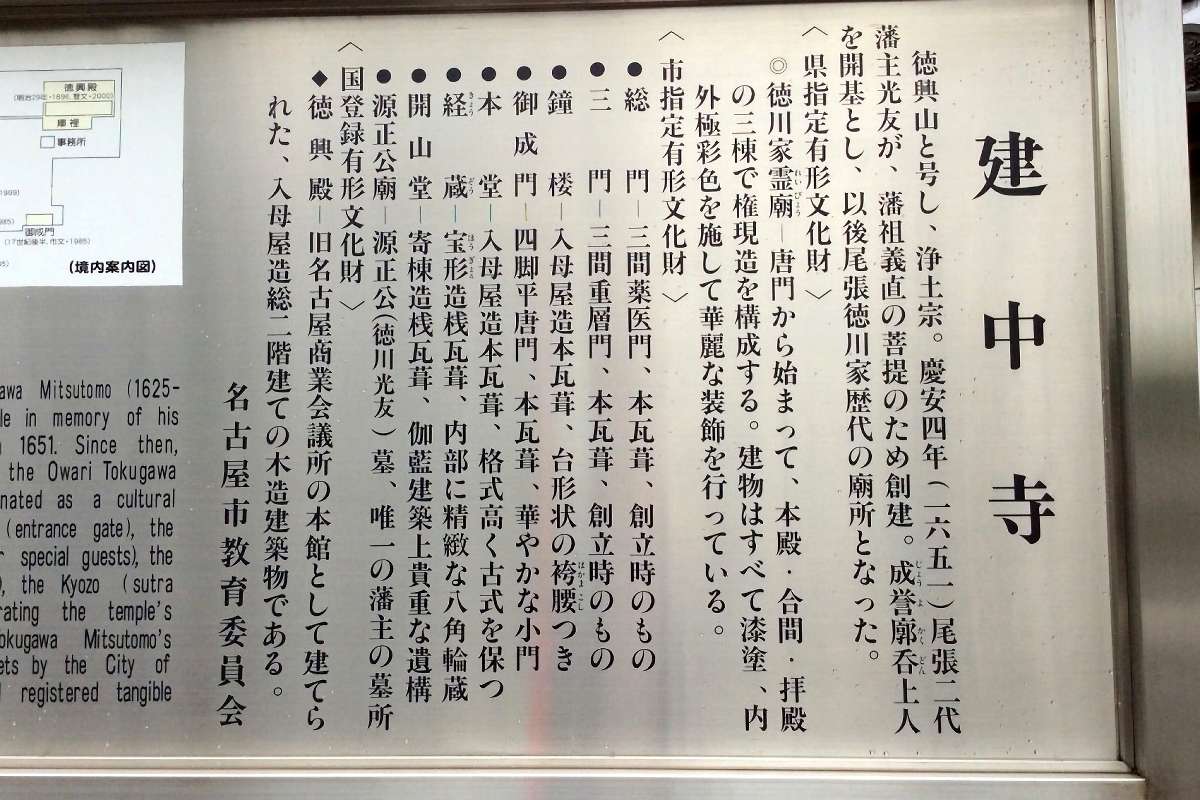 建中寺
徳興山と号し、浄土宗。慶安四年(一六五一)尾張二代
藩主光友が、藩祖義直の菩提のため創建。成誉廓呑上人
を開基とし、以後尾張徳川家歴代の廟所となった。
〈県指定有形文化財〉
◎徳川家霊廟―唐門から始まって、本殿・合間・拝殿
の三棟で権現造を構成する。建物はすべて漆塗、内
外極彩色を施して華麗な装飾を行っている。
〈市指定有形文化財〉
●総門―三間薬医門、本瓦葺、創立時のもの
●三門―三間重層門、本瓦葺、創立時のもの
●鐘楼―入母屋造本瓦葺、台形状の袴腰つき
●御成門―四脚平唐門、本瓦葺、華やかな小門
●本堂―入母屋造本瓦葺、格式高く古式を保つ
●経蔵―宝形造桟瓦葺、内部に精緻な八角輪蔵
●開山堂―寄棟造桟瓦葺、伽藍建築上貴重な遺構
●源正公廟―源正公(徳川光友)墓、唯一の藩主の墓所
〈国登録有形文化財〉
◆徳興殿―旧名古屋商業会議所の本館として建てら
れた、入母屋造総二階建ての木造建築物である。
名古屋市教育委員会
徳興殿
(明治29年・1896、登文・2000)
庫裡
事務所
御成門
(17世紀後半、市文・1985)
(境内案内図)
awa Mitsutomo (1625-
le in memory of his
1651. Since then,
the Owari Tokugawa
nated as a cultural
(entrance gate), the
special guests), the
the Kyozo (sutra
rating the temple's
okugawa Mitsutomo's
ets by the City of
registered tangible